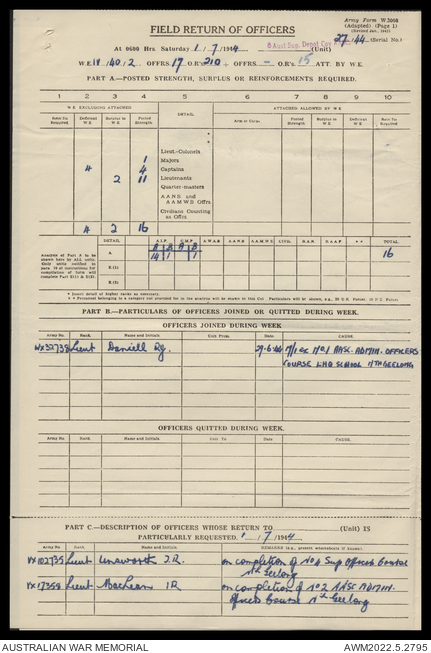 Army Form W.3008
(Adapted) (Page 1)
(Revised Jan., 1942)
FIELD RETURN OF OFFICERS
27/44 (Serial No.)
At 0600 Hrs. Saturday 1/7/1944 8 Aust Sup. Depot Coy (Unit)
W.E. 11/140/2. OFFRS. 17 O.R's 210 + OFFRS - O.R's 15 ATT. BY W.E.
PART A—POSTED STRENGTH, SURPLUS OR REINFORCEMENTS REQUIRED.
1 2 3 4 5 6 7 8 9 10
W.E. EXCLUDING ATTACHED
DETAIL
ATTACHED ALLOWED BY W.E.
Rein for Required
Deficient W.E.
Surplus to W.E.
Posted Strength
Arm or Corps
Posted Strength
Deficient W.E.
Surplus to W.E.
Rein for Required
Lieut.-Colonels
1 Majors
4 4 Captains
2 11 Lieutenants
Quarter-masters
A.A.N.S. and A.A.M.W.S. Offrs
Civilians Counting as Offrs
4 2 16
DETAIL A.I.F. C.M.F. A.W.A.S. A.A.N.S. A.A.M.W.S. CIVIL R.A.N. R.A.A.F. * * TOTAL
A B A B
Analysis of Part A to be shown here by ALL units.
Only units notified in para. 19 of instructions for completion of form will complete Part E(1) & E(2).
A. 14 1 1 16
E.(1)
E.(2)
* Insert detail of higher ranks as necessary.
* * Personnel belonging to a category not provided for in the analysis will be shown in this Col.
PART B.—PARTICULARS OF OFFICERS JOINED OR QUITTED DURING WEEK.
OFFICERS JOINED DURING WEEK
Army No. Rank. Name and Initials Unit From. Date CAUSE.
WX32738 Lieut Daniell RG. 29-6-44 M/I ex No.1 AASC. ADMIN. OFFICERS
COURSE LHQ SCHOOL NTH GEELONG
OFFICERS QUITTED DURING WEEK.
Army No. Rank. Name and Initials. Unit To. Date CAUSE.
PART C.—DESCRIPTION OF OFFICERS WHOSE RETURN TO (Unit) IS
PARTICULARLY REQUESTED. 1/7/1944
Army No. Rank. Name and Initials. REMARKS (e.g., present whereabouts if known).
VX102735 Lieut Unsworth J.R. on completion of No 4 Sup Officers Course
Nth Geelong
VX17359 Lieut MacLean IR on completion of No 2 AASC ADMIN.
officers Course Nth Geelong
AUSTRALIAN WAR MEMORIAL
AWM2022.5.2795